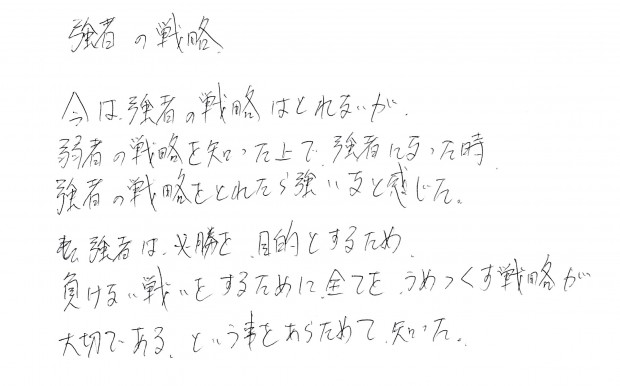 強者の戦略
今は、強者の戦略はとれないが、
弱者の戦略を知った上で、強者になった時、
強者の戦略をとれたら強いなと感じた。
強者は、必勝を、目的とするため、
負けない戦いをするために、全てを、うめつくす戦略が
大切である、という事をあらためて、知った。